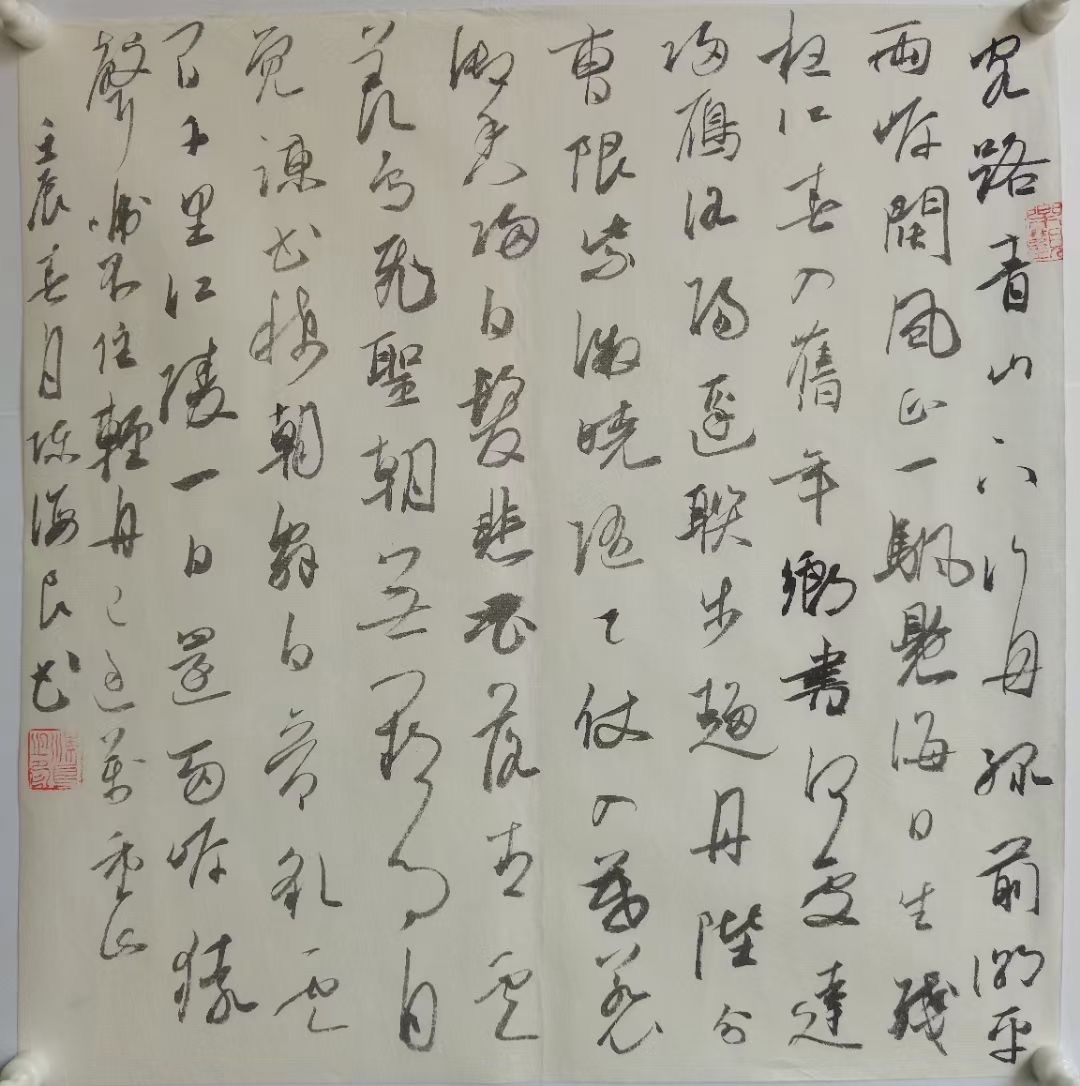 客路青山下行舟綠前潮平
兩岸闊風正一颿懸海日生殘
夜江春入舊年鄉書何處達
歸雁洛陽邊聯步趨丹陛分
曹限紫微曉隨天仗入暮惹
御香歸白髮悲花落青雲
羨鳥飛聖朝無闕事自
覺諫書稀朝辭白帝彩雲
間千里江陵一日還兩岸猿
聲啼不住輕舟已過萬重山
壬辰春月陳海良書